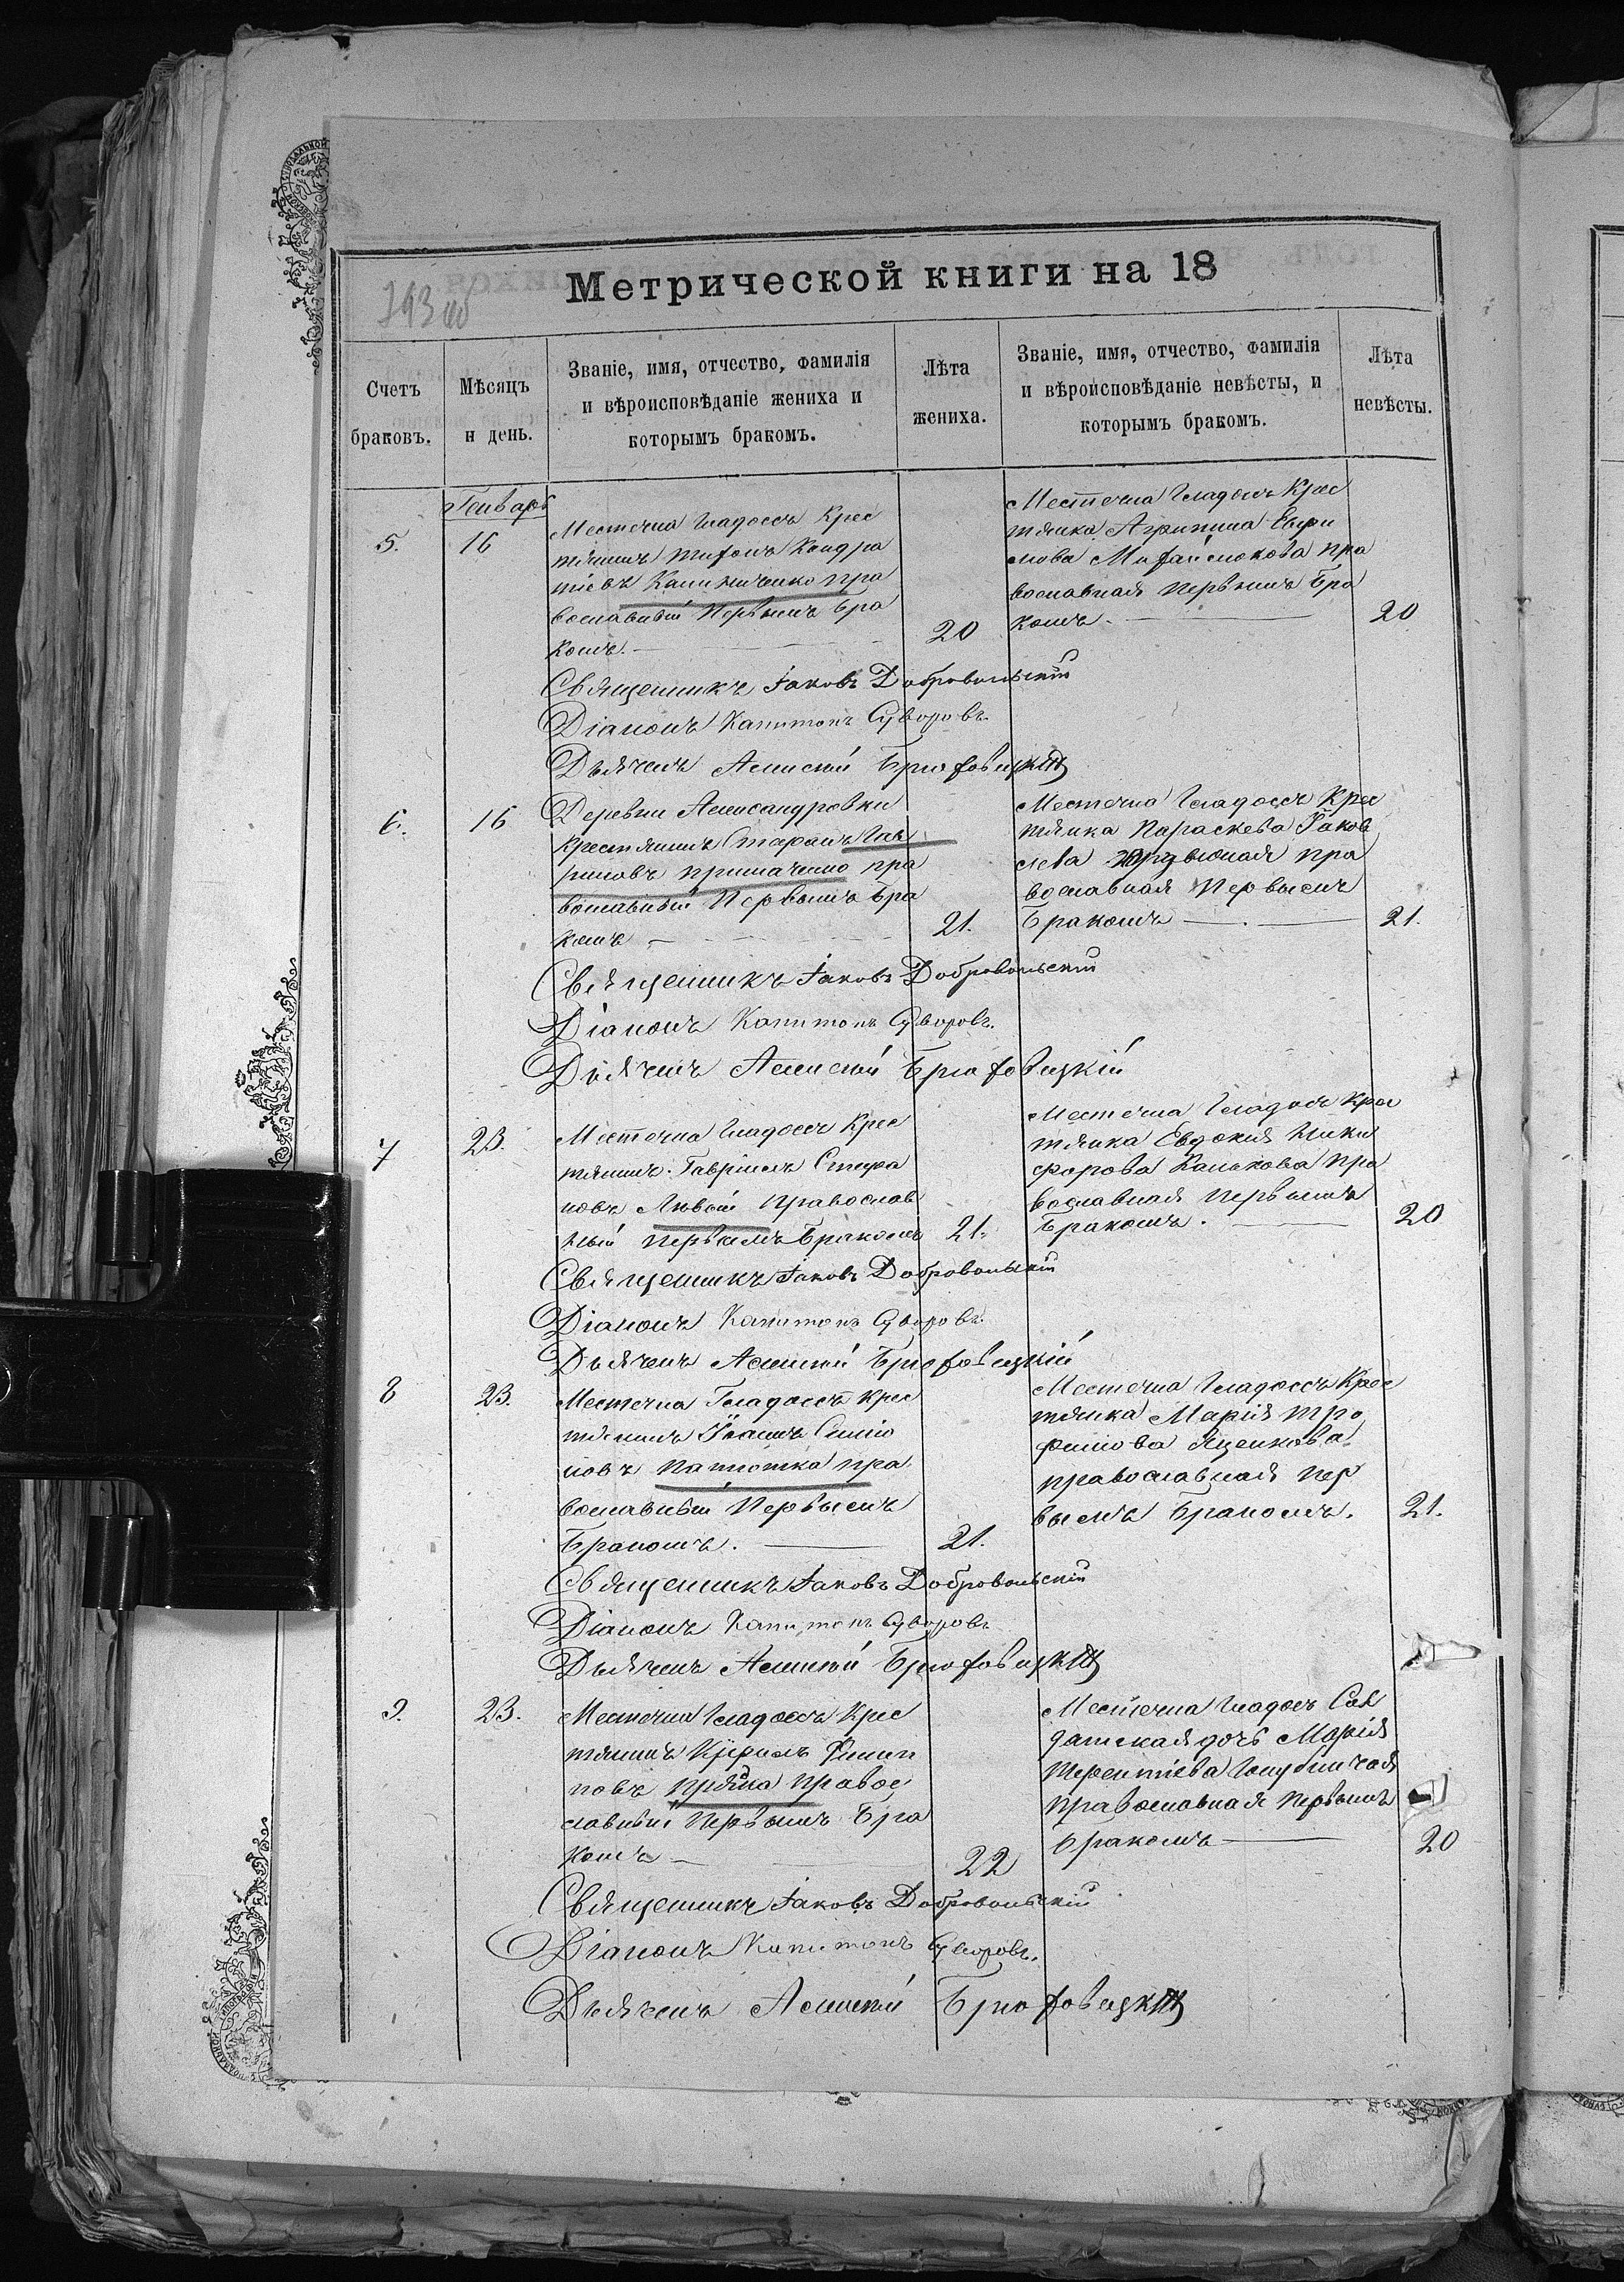 793 об
Метрической книги на 18
Счетъ браковъ.
Мѣсяцъ и день.
Званіе, имя, отчество, фамилія
и вѣроисповѣданіе жениха и
которымъ бракомъ.
Лѣта жениха.
Званіе, имя, отчество, фамилія
и вѣроисповѣданіе невѣсты, и
которымъ бракомъ.
Лѣта невѣсты.
Генваря
5.
16
Местечка Гладосъ Крес
тянинъ Тихонъ Кондра
тіевъ Калиниченко пра
вославный Первымъ бра
комъ.
20
Местечка Гладосъ Крес
тянка Агрипина
Михайлюкова пра
вославная первымъ бра
комъ.
20
Священникъ Іаковъ Добровольскій
Діаконъ Капитонъ Суворовъ.
Дьячекъ Алексій Брюховецкій
6.
16
Деревни Александровки
Крестянинъ Стефанъ Гав
риловъ Примаченко пра
вославный Первымъ бра
комъ
21.
Местечка Гладосъ Крес
тянка Параскева Іаков
лева пра
вославная Первымъ
Бракомъ
21.
Священникъ Іаковъ Добровольскій
Діаконъ Капитонъ Суворовъ.
Дьячекъ Алексій Брюховецкій
7
23.
Местечка Гладосъ Крес
тянинъ Гавріилъ Стефа
новъ Лѣвый Православ
ный первымъ Бракомъ
21.
Местечка Гладосъ Крес
тянка Евдокія Ники
форова Калькова Пра
вославная первымъ
Бракомъ.
20
Священникъ Іаковъ Добровольскій
Діаконъ Капитонъ Суворовъ.
Дьячекъ Алексій Брюховецкій
8
23.
Местечка Гладосъ крес
тянинъ Іоаннъ Симіо
новъ пра
вославный Первымъ
Бракомъ.
21.
Местечка Гладосъ Крес
тянка Марія Тро
фимова Яценкова
православная пер
вымъ Бракомъ.
21.
Священникъ Іаковъ Добровольскій
Діаконъ Капитонъ Суворовъ
Дьячекъ Алексій Брюховецкій
9.
23.
Местечка Гладосъ Крес
тянинъ Кирилъ Филип
повъ Прядка правос
лавный Первымъ Бра
комъ
22
Местечка Гладосъ Сол
датская дочь Марія
Терентіева Голубничая
Православная Первымъ
Бракомъ
20
Священникъ Іаковъ Добровольскій
Діаконъ Капитонъ Суворовъ.
Дьячекъ Алексій Брюховецкій